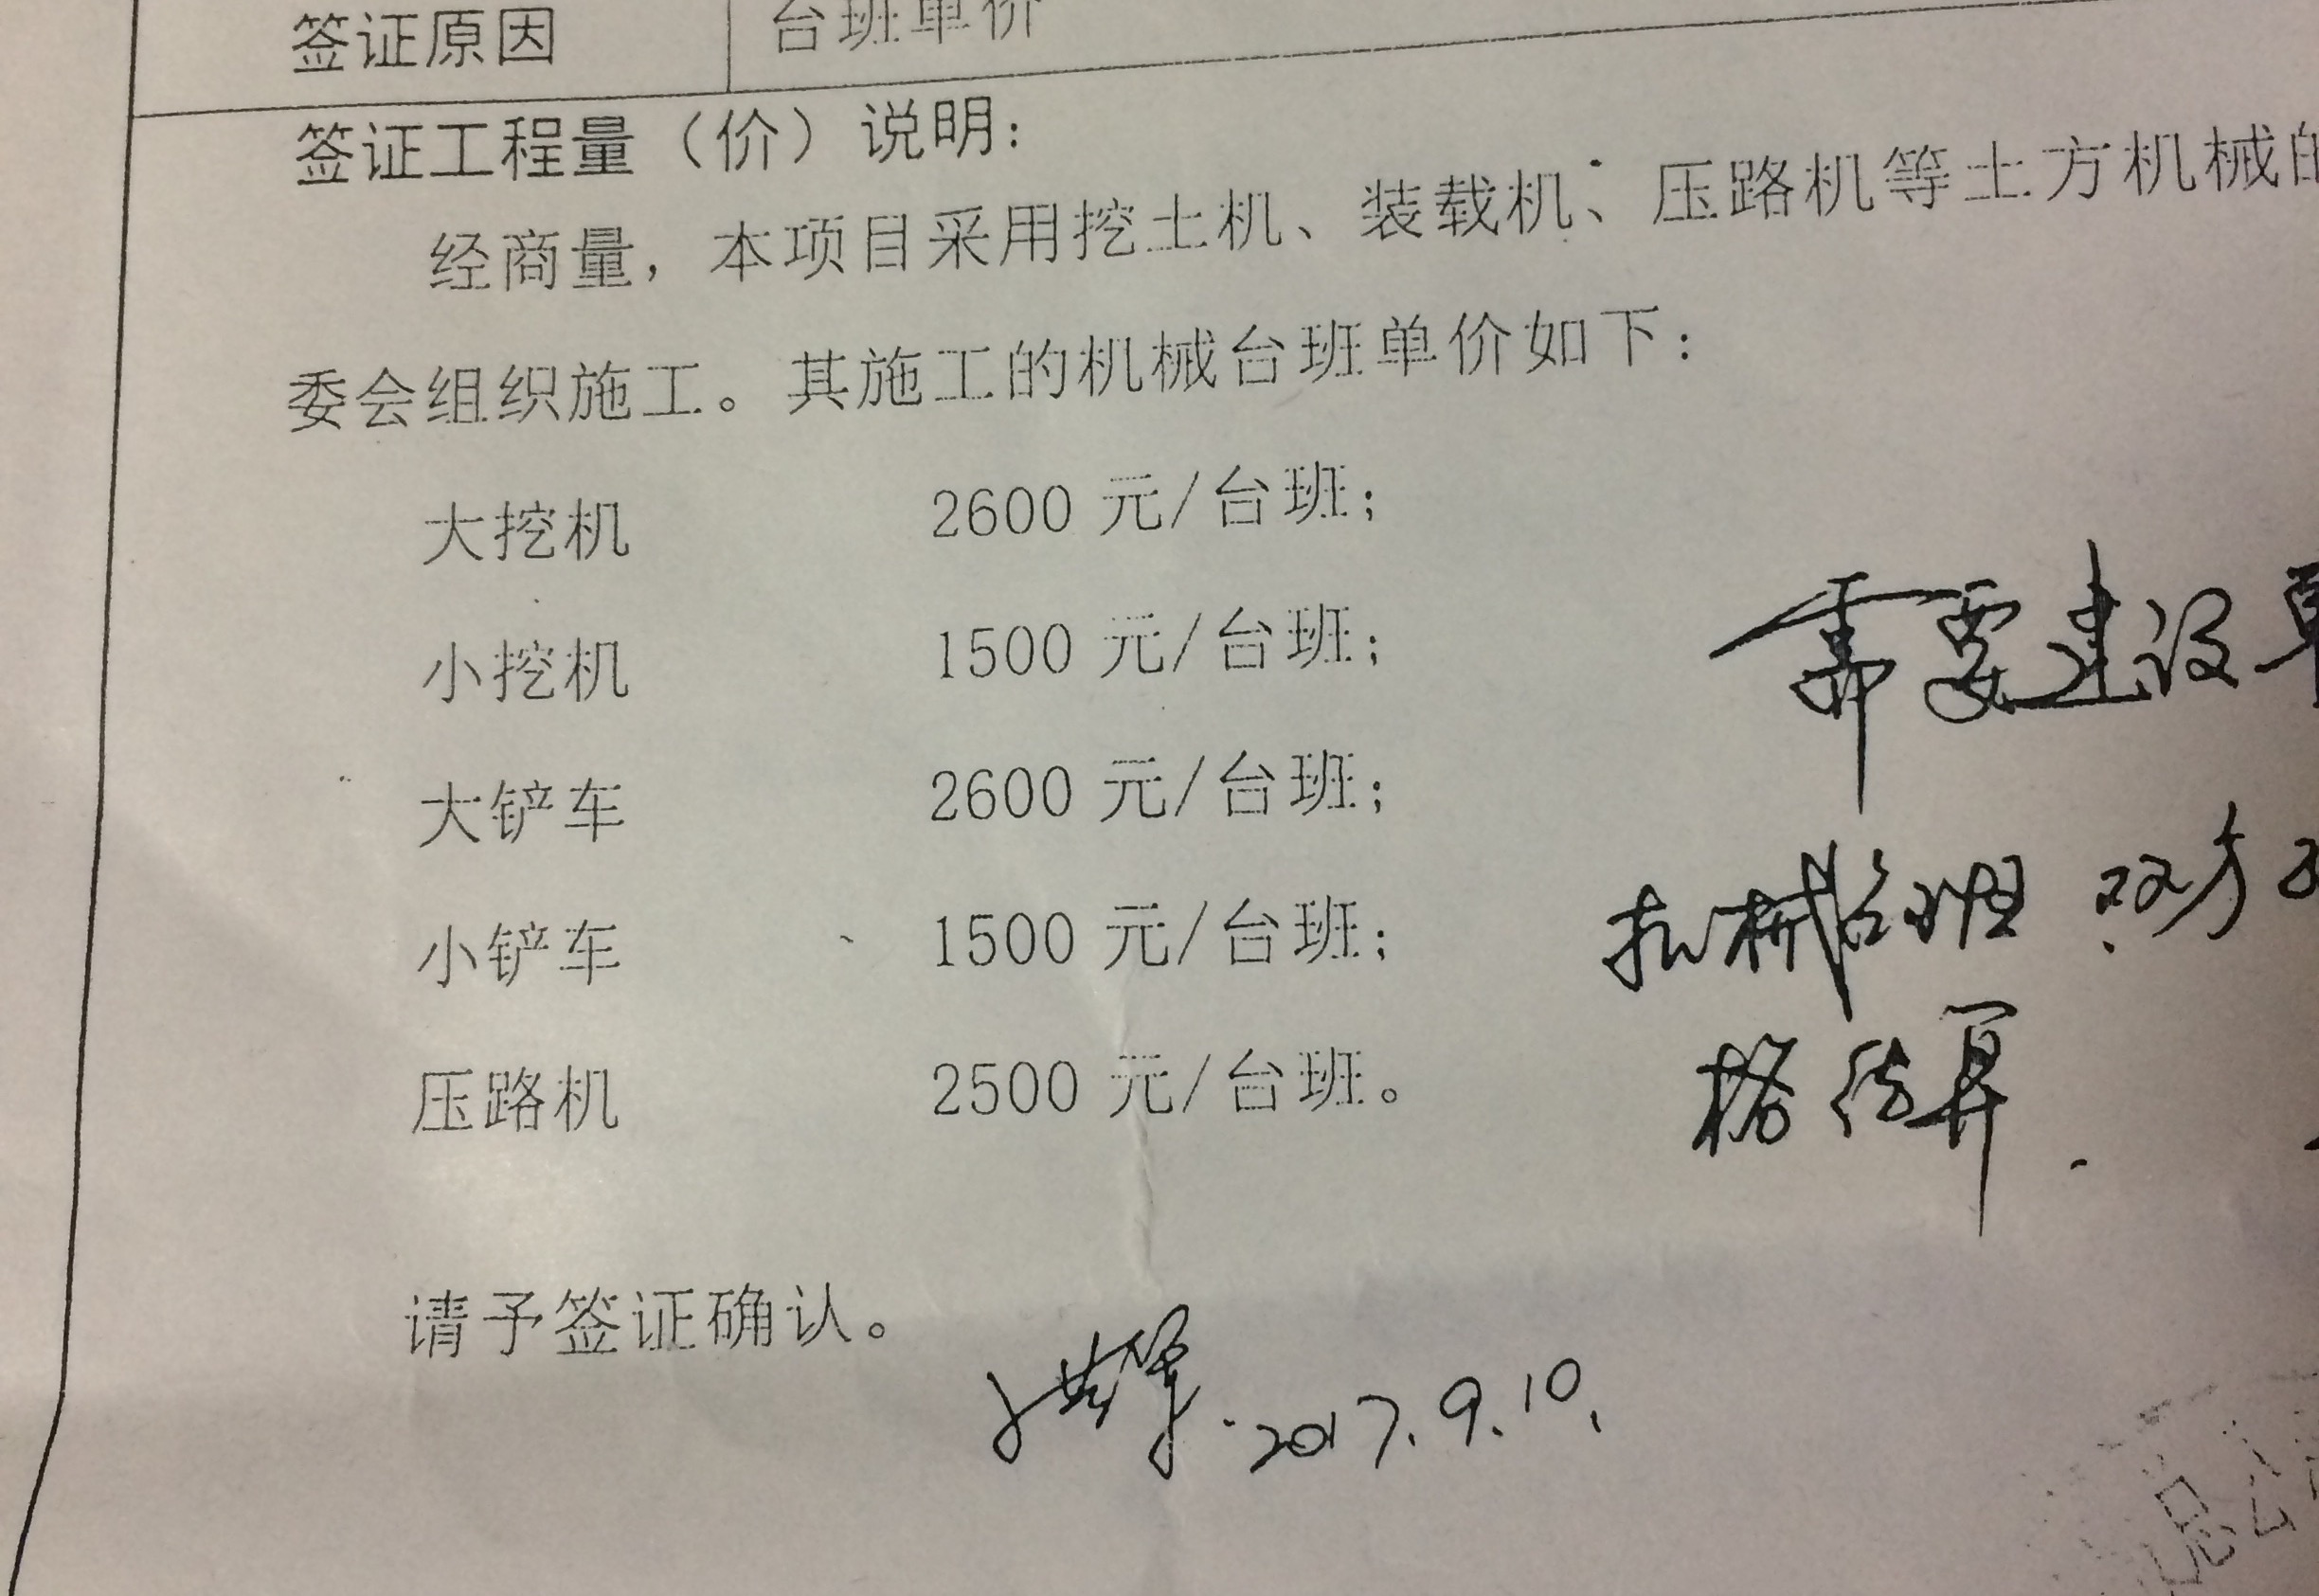 签证原因 台班单价
签证工程量（价）说明：
经商量，本项目采用挖土机、装载机、压路机等土方机械的
委会组织施工。其施工的机械台班单价如下：
大挖机 2600 元/台班；
小挖机 1500 元/台班；
需要建设单
大铲车 2600 元/台班；
小铲车 1500 元/台班；
机械台班 双方
压路机 2500 元/台班。
格结算
请予签证确认。
2017.9.10.